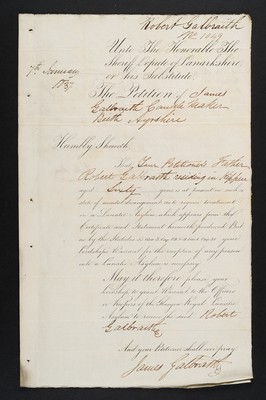 Robert Galbraith
No 1049
Unto The Honorable The
Sheriff Depute of Lanarkshire
or his Substitute.
7th January
1857
The Petition of James
Galbraith Candle Maker
Beith Ayrshire
Humbly Sheweth
That Your Petitioner's Father
Robert Galbraith residing in
aged Sixty years is at present in such a
state of mental derangement as to require treatment
in a Lunatic Asylum which appears from the
Certificate and Statement herewith produced. But
as by the Statutes your
Lordships Warrant for the reception of any person
into a Lunatic Asylum is necessary.
May it therefore please your
Lordship to grant Warrant to the Officers
or Keepers of the Glasgow Royal Lunatic
Asylum to receive the said Robert
Galbraith
And your Petitioner shall ever pray
James Galbraith